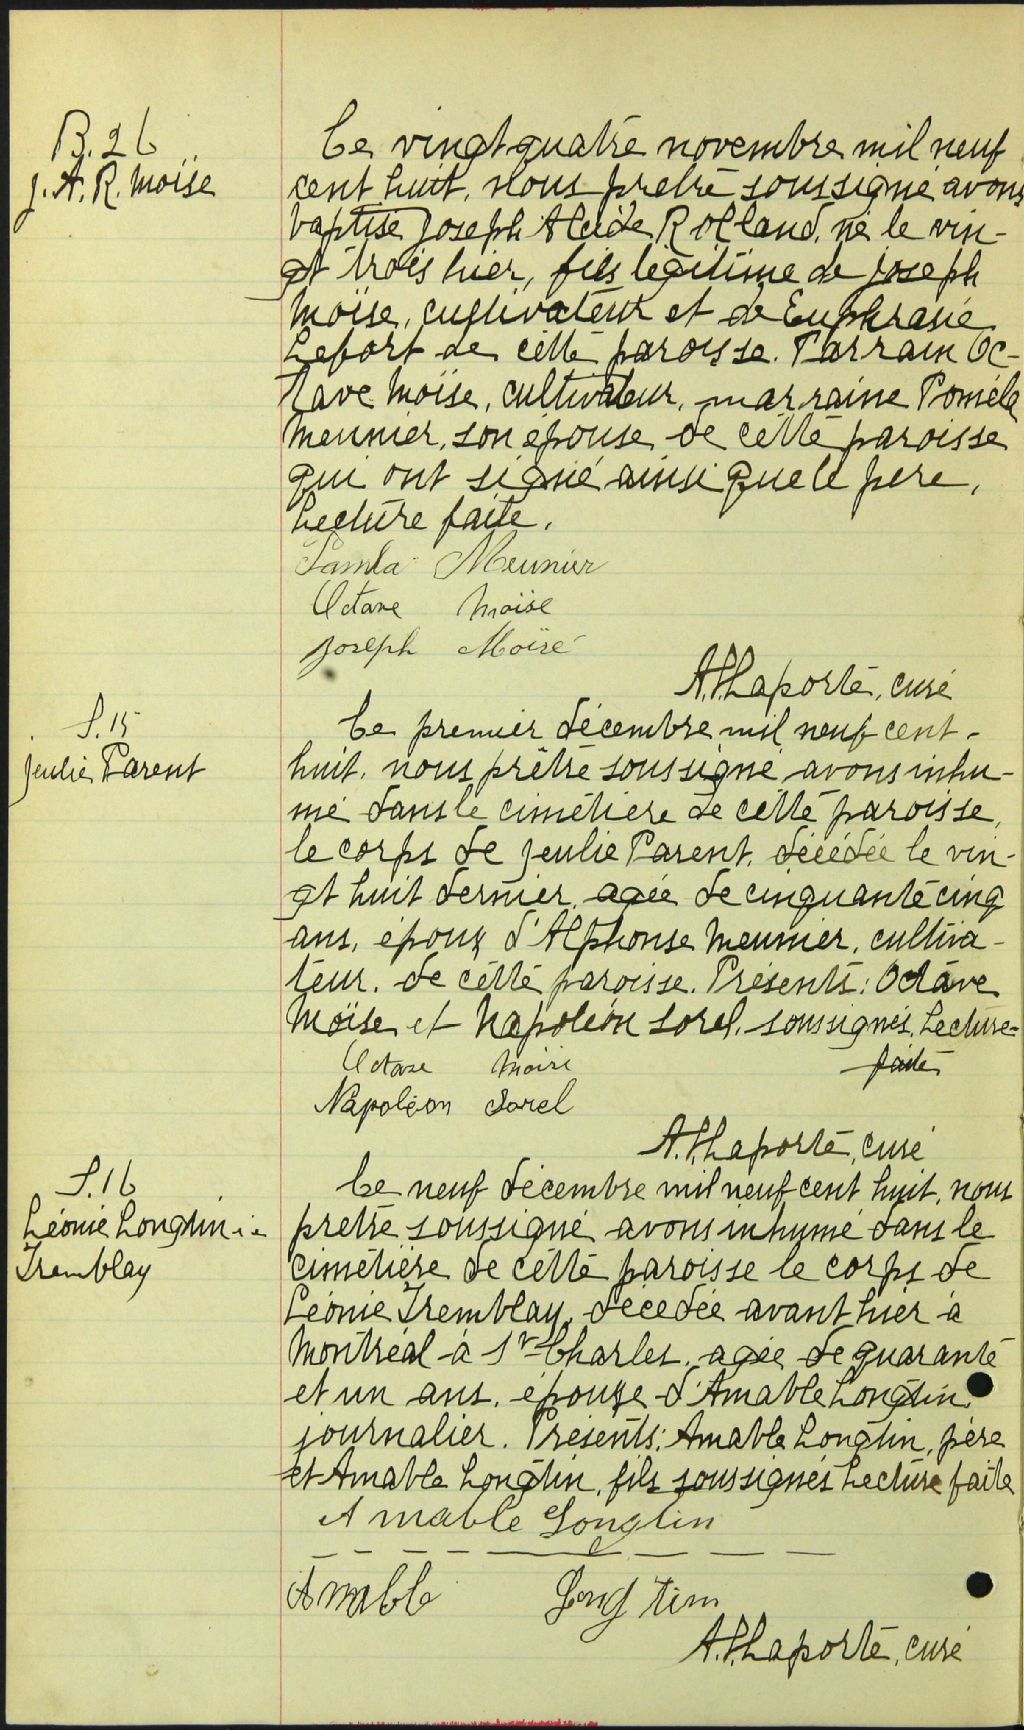 B. 26
J. A. R. Moïse
Ce vingt quatre novembre mil neuf
cent huit, nous prêtre soussigné avons
baptisé Joseph Alcide Rolland, né le vin-
gt trois hier, fils légitime de Joseph
Moïse, cultivateur et de Euphrasie
Lefort de cette paroisse. Parrain Oc-
tave Moïse, cultivateur, marraine Poméla
Meunier, son épouse de cette paroisse
qui ont signé ainsi que le père.
Lecture faite.
Meunier
Octave Moïse
Joseph Moïse
A. P. Laporte, curé
S. 15
Julie Parent
Ce premier décembre mil neuf cent-
huit, nous prêtre soussigné avons inhu-
mé dans le cimetière de cette paroisse,
le corps de Julie Parent, décédée le vin-
gt huit dernier, agée de cinquante cinq
ans, épouse d'Alphonse Meunier, cultiva-
teur, de cette paroisse. Présents: Octave
Moïse et Napoléon Sorel, soussignés. Lecture
faite
Octave Moïse
Napoléon Sorel
A. P. Laporte, curé
S. 16
Léonie Longtin
Tremblay
Ce neuf décembre mil neuf cent huit, nous
prêtre soussigné avons inhumé dans le
cimetière de cette paroisse le corps de
Léonie Tremblay, décédée avant hier à
Montréal à St-Charles, agée de quarante
et un ans, épouse d'Amable Longtin,
journalier. Présents: Amable Longtin, père
et Amable Longtin, fils soussignés Lecture faite
Amable Longtin
Amable Longtin
A. P. Laporte, curé